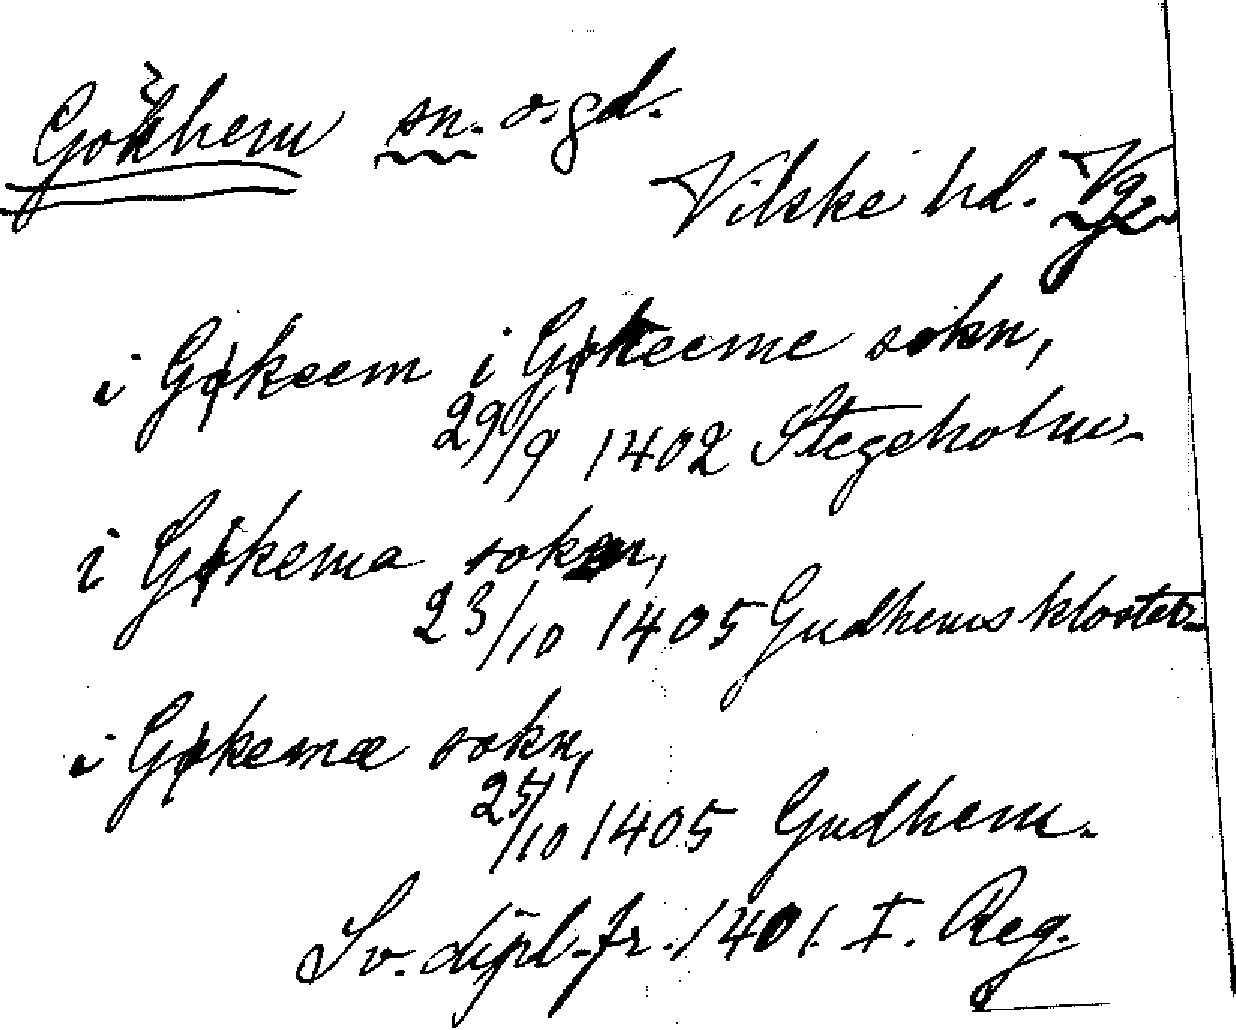 Gökhem sn. o. gd.
Vilske hd. Vg.
i Gøkeem i Gøkeeme sokn,
29/9 1402 Stegeholm.
i Gøkema sokn,
23/10 1405 Gudhems kloster.
i Gøkemæ sokn,
25/10 1405 Gudhem.
Sv. dipl. fr. 1401. I. Reg.